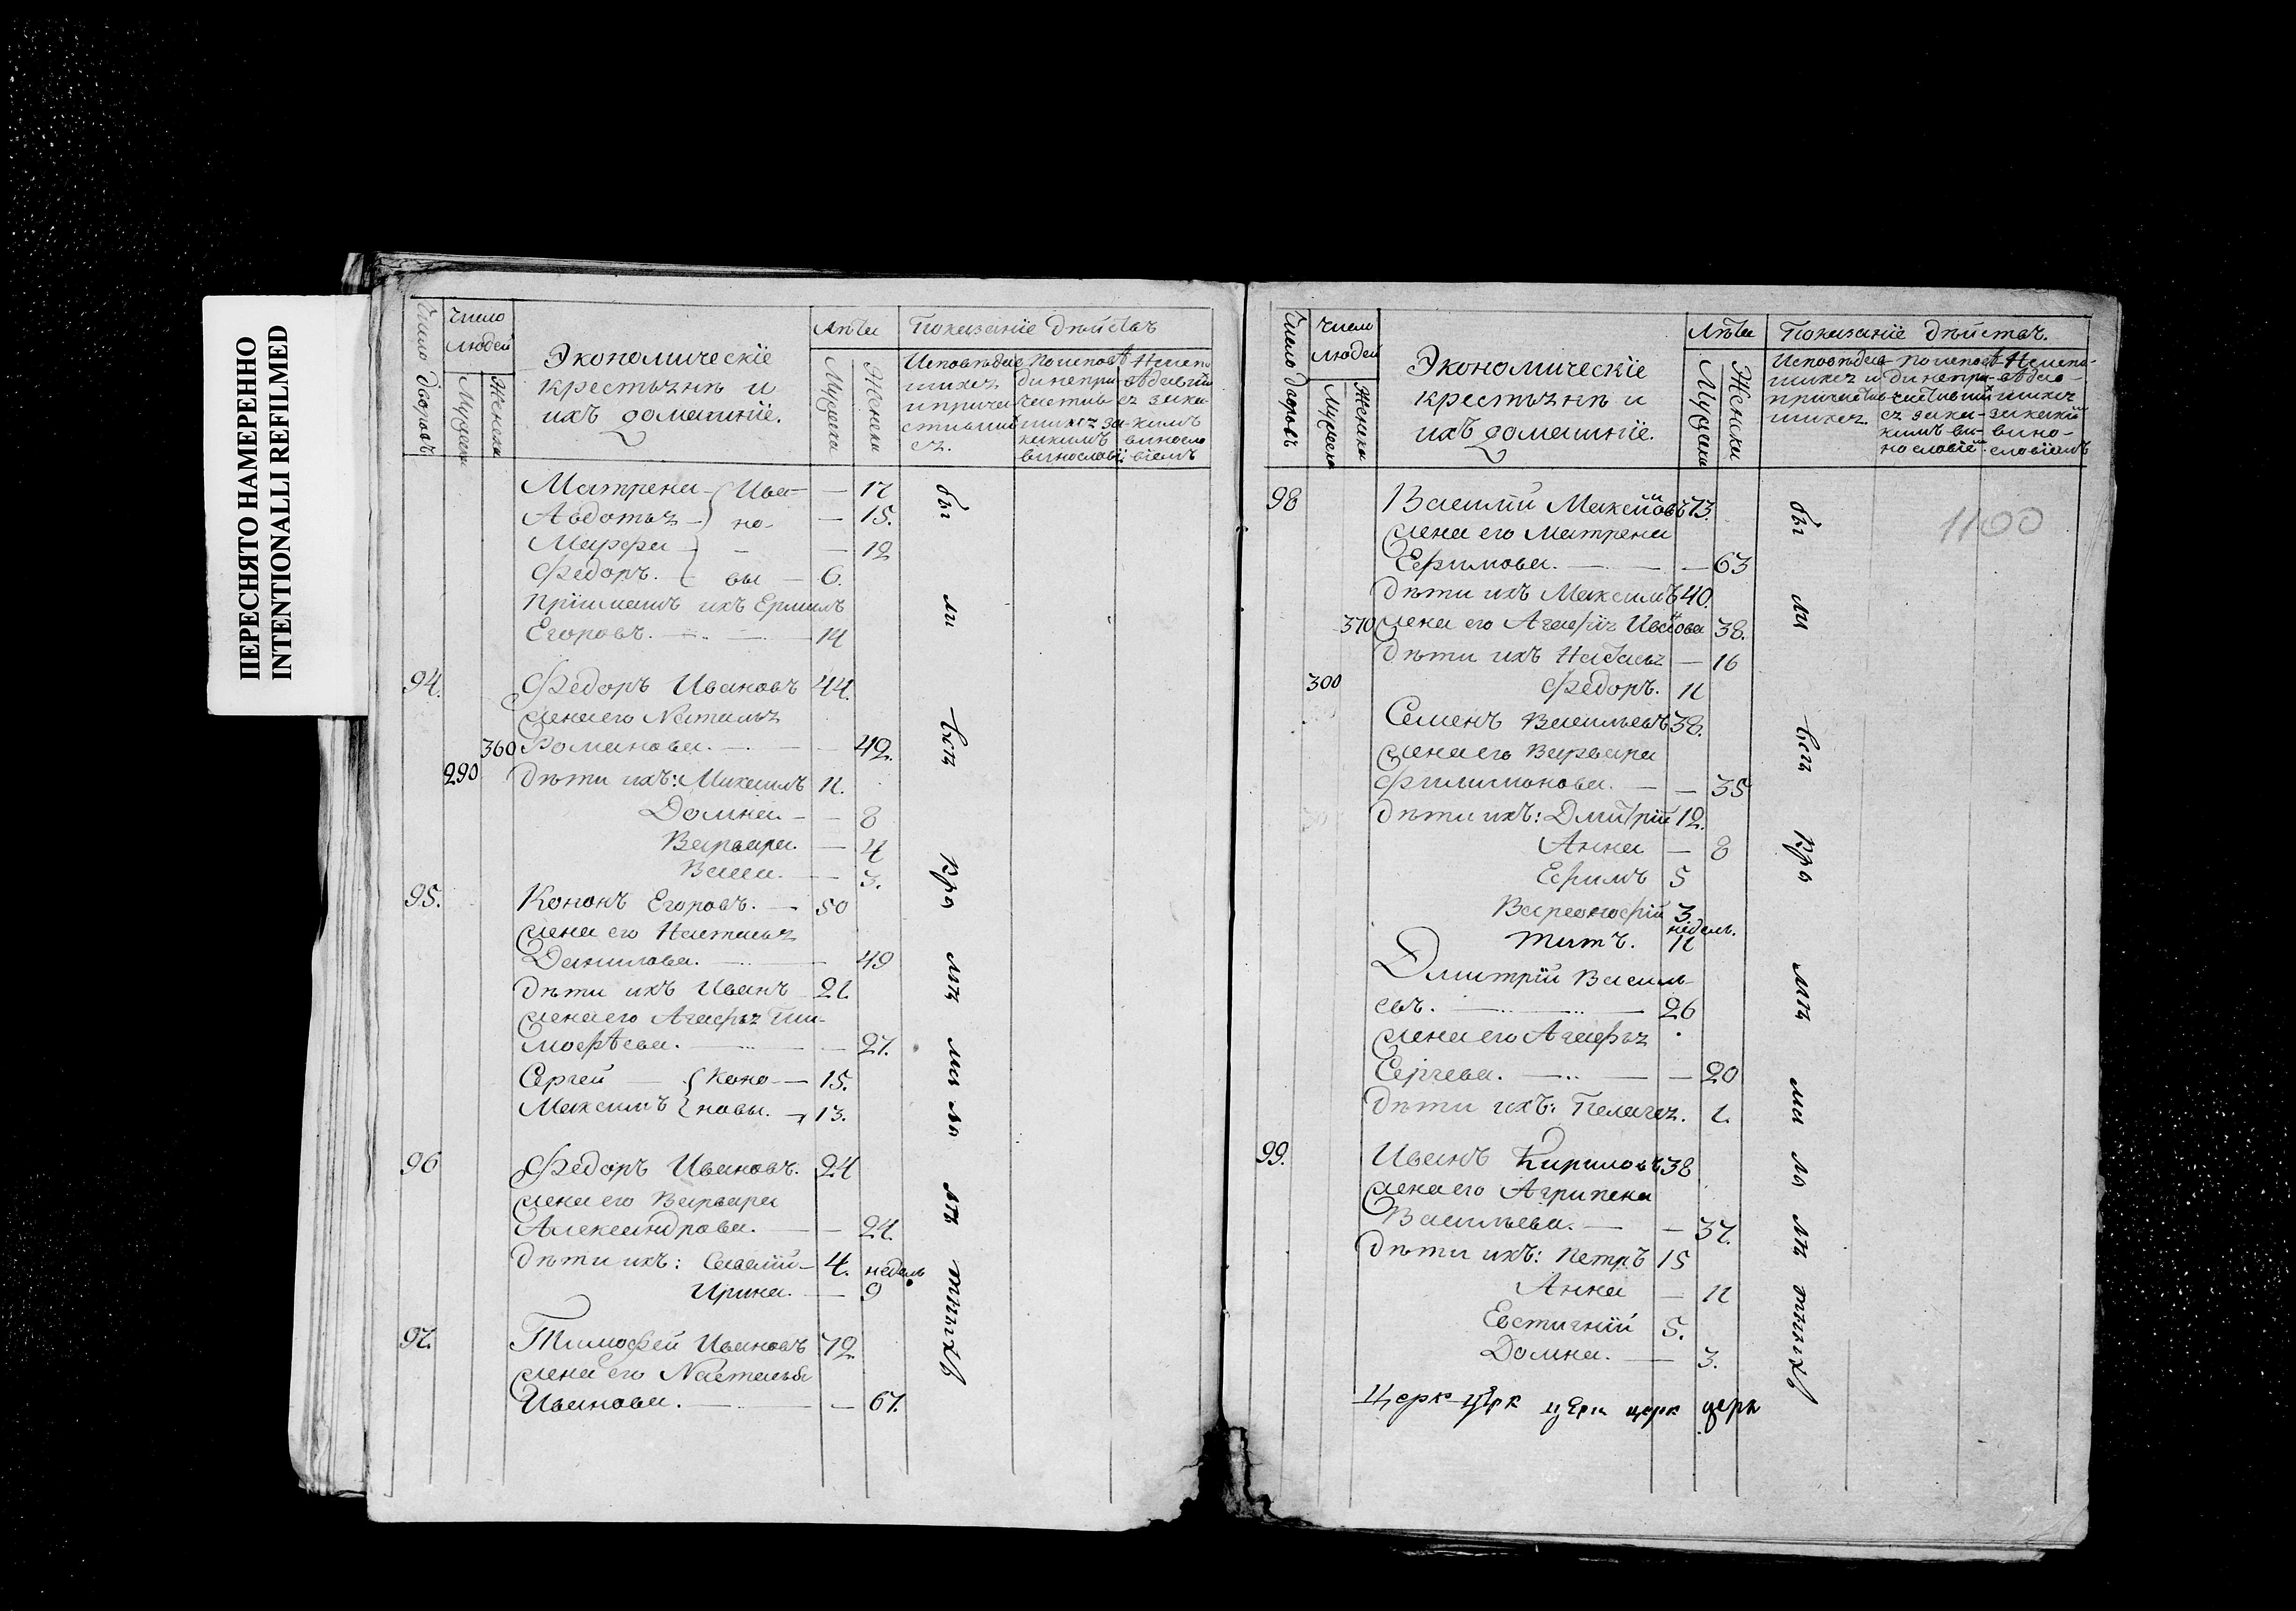 ПЕРЕСНЯТО НАМЕРЕННО
INTENTIONALLI REFILMED
Число дворовъ
Число людей
Мужеска
Женска
Экономическіе
крестьянѣ и
ихъ домашніе.
Лѣта
Мужеска
Женска
Показаніе дѣйства
Исповѣдав
шихся
и прича
стивши
ся.
По испов
ди непри
частив
шихся за
какимъ
винослові
Неиспо
вѣдавши
ся за ка
кимъ
винословіемъ
Матрена Ива — 17
Авдотья но — 15.
Марфа — 12
Федоръ. вы — 6.
Пріимашъ ихъ Ермилъ
Егоровъ. — 14
94. Федоръ Ивановъ 44.
жена его Наталья
360 Романова. — 42.
290 Дѣти ихъ: Михаилъ 11.
Домна — 8
Варвара. — 4
Васса. — 3.
95. Кононъ Егоровъ. — 50
жена его Настасья
Данилова. — 49
Дѣти ихъ Иванъ 21.
жена его Агафья Ти-
мофѣева. — 27.
Сергей — Коно — 15.
Максимъ новы. 13.
96 Федоръ Ивановъ. 24
жена его Варвара
Александрова. — 24.
Дѣти ихъ: 4. недель
Ирина. — 9
97. Тимофей Ивановъ 72
жена его Наталья
Иванова. — 67.
бы
ли
вся
вро
мя
ми
ло
ля
тныхъ
Число дворовъ
Число людей
Мужеска
Женска
Экономическіе
крестьянѣ и
ихъ домашніе.
Лѣта
Мужеска
Женска
Показаніе дѣйства.
Исповѣдав
шихся и
причастив
шихся.
По исповѣ
ди непри-
частивши
ся за ка-
кимъ ви-
нословіе
Неиспо-
вѣдав-
шихся
за какимъ
вино-
словіемъ
98 Василій Максимовъ 73.
жена его Матрена
Ефимова. — 63
Дѣти ихъ Максимъ 40.
370 жена его Агафія Иванова 38.
Дѣти ихъ Настасья — 16
300 Федоръ. 11
Семенъ Васильевъ 38.
жена его Варвара
Филимонова. — 35
Дѣти ихъ: Дмитрій 12.
Анна — 8
Ефимъ 5
Варфоломей 3
недель.
Титъ. 11
Дмитрій Василь
евъ. — 26
жена его Агафья
Сергева. — 20
Дѣти ихъ: Пелагея. 1.
99. Иванъ Кириловъ 38
жена его Агрипена
Васильева. — 37.
Дѣти ихъ: Петръ 15
Анна — 11
Евстигній 5.
Домна. — 3.
церк црк церк церк церк
бы
ли
вся
вро
мя
ми
ло
ля
тныхъ
1100